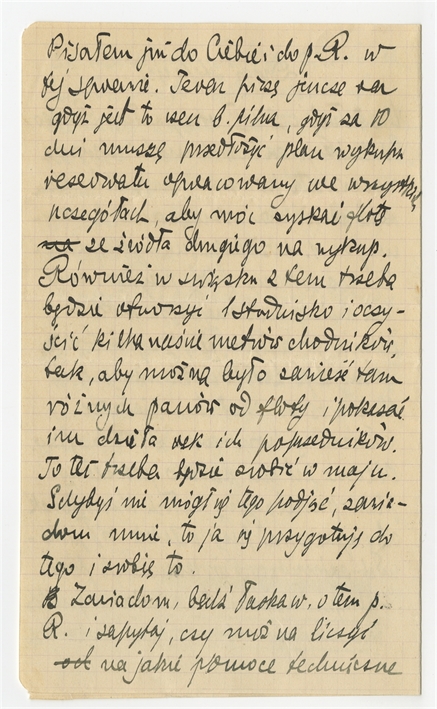 Pisałem już do Ciebie i do p. R. w
tej sprawie. Teraz piszę jeszcze raz
gdyż jest to rzecz b. pilna, gdyż za 10
dni muszę przedłożyć plan wykupu
rezerwatu opracowany we wszystkich
szczegółach, aby móc zyskać flotę
na ze źródła drugiego na wykup.
Również w związku z tem trzeba
będzie otworzyć 1 stud­nisko i oczy-
ścić kilkanaście metrów chodników,
tak, aby można było zanieść tam
różnych panów od floty i pokazać
im dzieła rąk ich poprzedników.
To też trzeba będzie zrobić w maju.
Gdybyś nie mógł się tego podjąć, zawia-
dom mnie, to ja się przygotuję do
tego i zrobię to.
Zawiadom, bądź łaskaw, o tem p.
R. i zapytaj, czy można liczyć
od na jakie pomoce techniczne